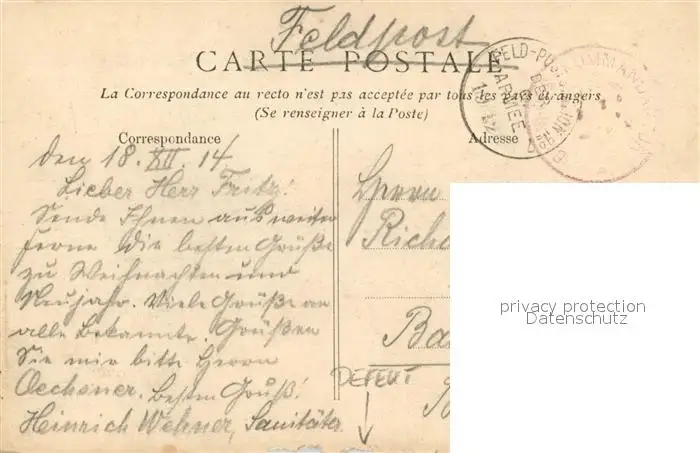 Feldpost
CARTE POSTALE
La Correspondance au recto n'est pas acceptée par tous les pays étrangers
(Se renseigner à la Poste)
FELD-POST
ARMEE
Correspondance
Adresse
den 18. XII. 14.
Lieber Herr Fritz!
Sende Ihnen aus weiter
Ferne die besten Grüße
zu Weihnachten und
Neujahr. Viele Grüße an
alle Bekannte. Grüßen
Sie mir bitte Herrn
Oechsner. Besten Gruß!
Heinrich Wehner, Sanitäter
Herrn
Richa
Ba
DEFEKT
privacy protection
Datenschutz